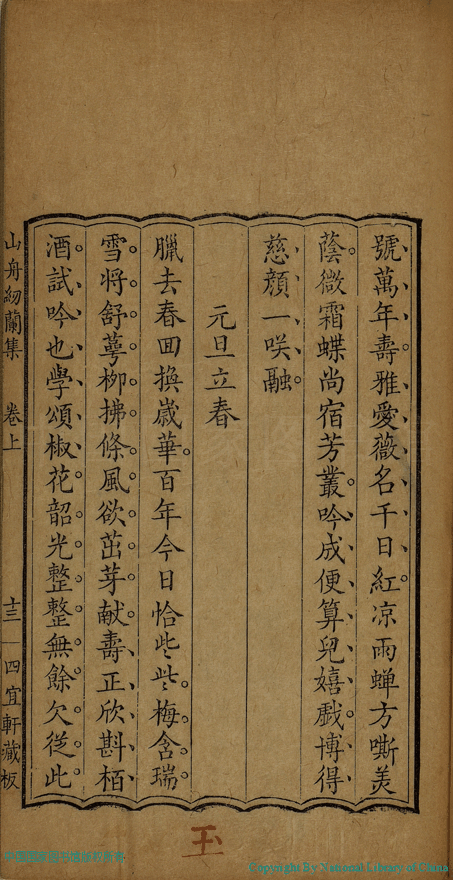 號萬年壽雅愛薇名千日紅凉雨蟬方嘶美
蔭微霜蝶尚宿芳叢吟成便算兒嬉戲博得
慈顏一咲融
元旦立春
臘去春回換歲華百年今日恰些些梅含瑞
雪將舒萼柳拂條風欲茁芽献壽正欣斟栢
酒試吟也學頌椒花韶光整整無餘欠從此
山舟紉蘭集 卷上 十三 四宜軒藏板
玉
Copyright By National Library of China